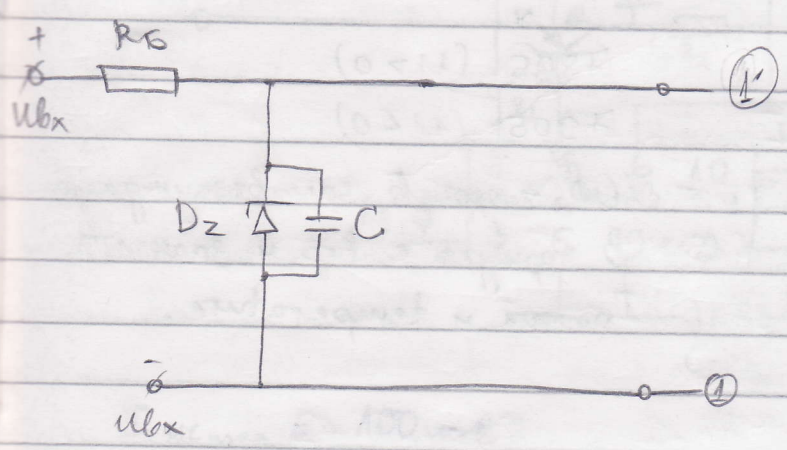 +
Rб
Uвх
1'
Dz
C
-
Uвх
1